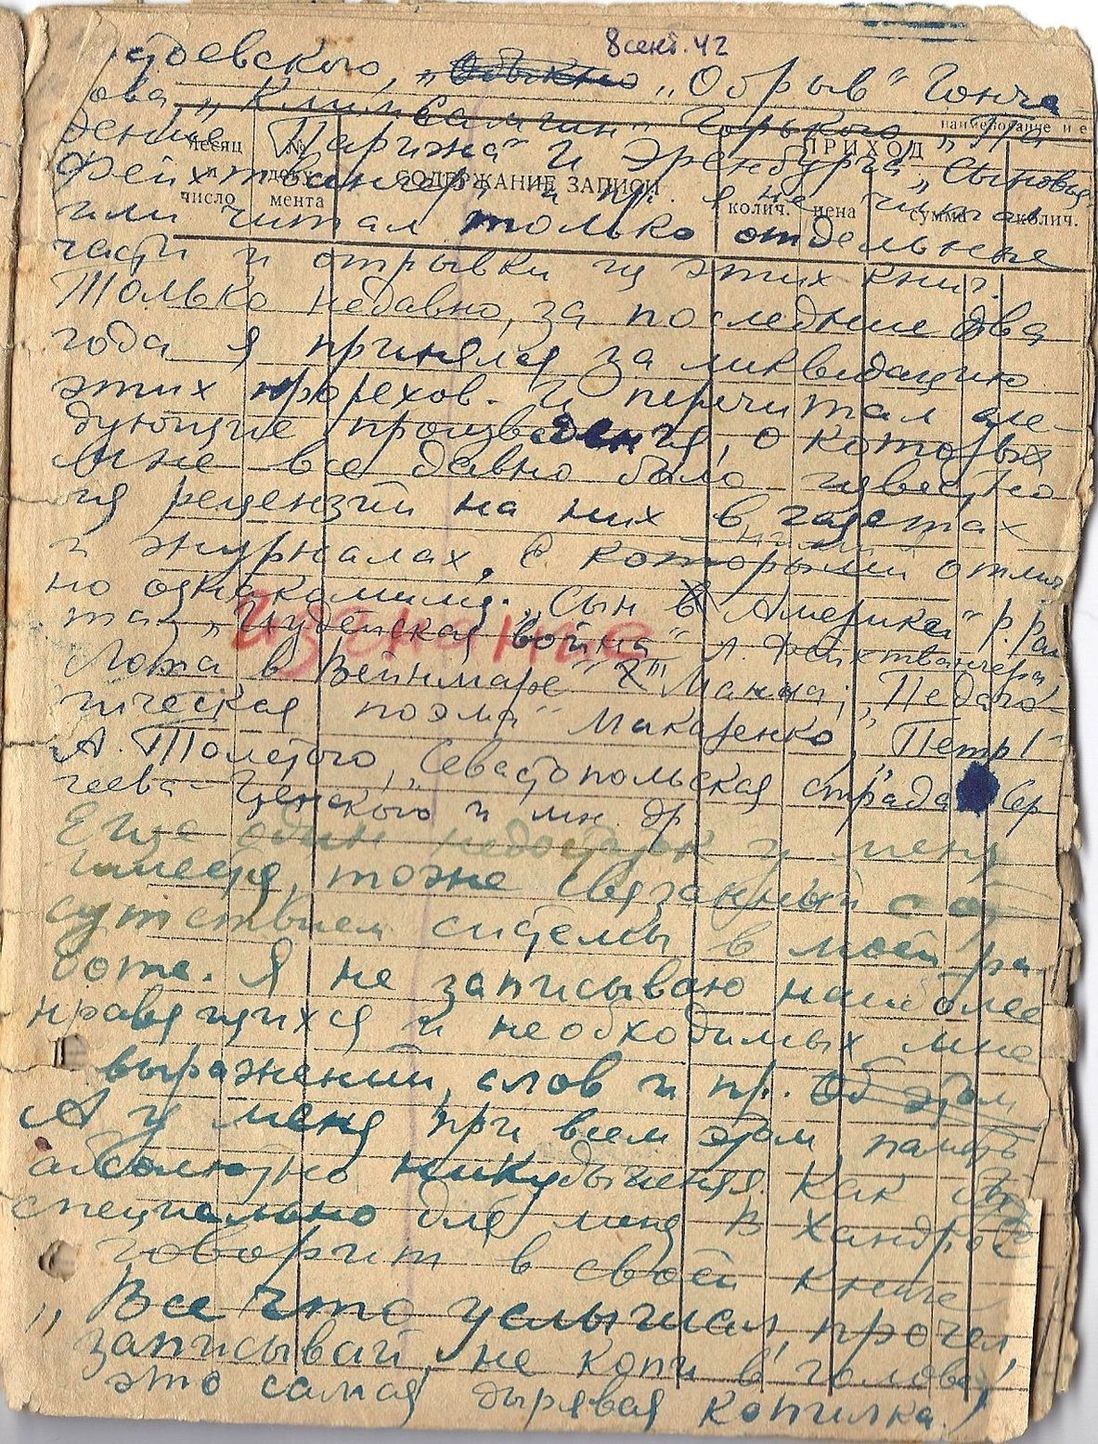 8 сент. 42
стоевского, „Обыкно „Обрыв" Гонча
ова, „Клим Самгин" Горького, „Па
дение Парижа" И. Эренбурга, „Сыновья
Фейхтвангера и пр. я не читал
или читал только отдельные
части и отрывки из этих книг.
Только недавно, за последние два
года я принялся за ликвидацию
этих прорехов. И перечитал сле-
дующие произведения, о которых
мне все давно было известно
из рецензий на них в газетах
и журналах, с которыми отлич
ними
но ознакомился. „Сын Америки" Р. Рай
та, „Иудейская война" Л. Фейхтвангера
изгнание
„Лотта в Веймаре" Т. Манна; „Педаго-
гическая поэма" Макаренко, „Петр I"
А. Толстого, „Севастопольская страда" Сер
геева-Ценского и мн. др
Еще один недостаток у меня
имеется, тоже связанный с от
сутствием системы в моей ра
боте. Я не записываю наиболее
нравящихся и необходимых мне
выражений, слов и пр. Об этом
А у меня при всем этом память
абсолютно никудышная. Как бы
специально для меня В. Хандрос
говорит в своей книге
„Все что услышал, прочел
записывай, не копи в голове,
это самая дырявая копилка.
месяц и число
№ доку-мента
СОДЕРЖАНИЕ ЗАПИСИ
ПРИХОД
колич. цена сумма колич.
наименование и е